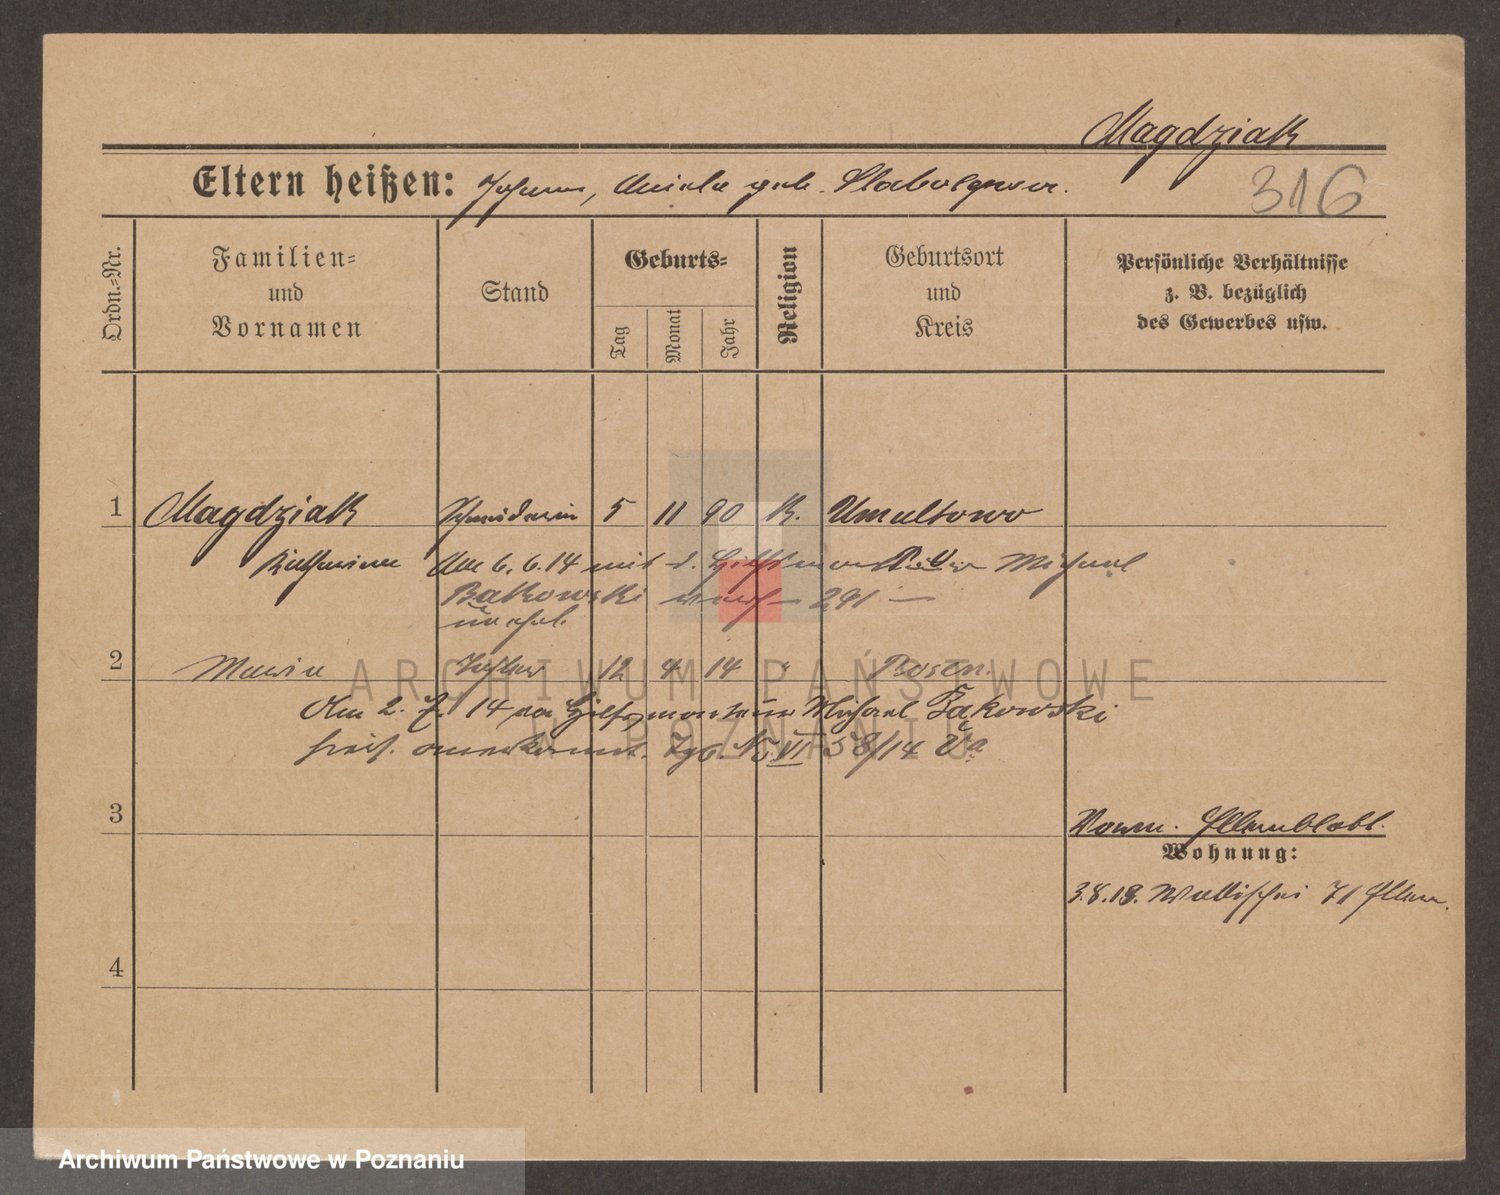 Magdziak
316
Eltern heißen: Johann, Aniela geb.
Ordn.=Nr.
Familien=
und
Vornamen
Stand
Geburts=
Tag
Monat
Jahr
Religion
Geburtsort
und
Kreis
Persönliche Verhältnisse
z. B. bezüglich
des Gewerbes usw.
1 Magdziak Schneiderin 5 11 90 K. Umultowo
Katharina Am 6. 6. 14 mit d. Michael
Bąkowski 291
unehel.
2 Maria Tochter 12 4 14 " Posen.
Am 2. 7. 14 von Hilfsmonteur Michael Bąkowski
anerkannt. Tgb. No VI 58/14 Va
3
Wohnung:
3.8.18. Wallischei 71
4
ARCHIWUM PAŃSTWOWE
W POZNANIU
Archiwum Państwowe w Poznaniu